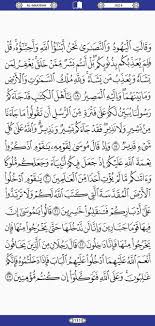 AL-MAAIDAH JUZ 6
وَقَالَتِ ٱلْيَهُودُ وَٱلنَّصَـٰرَىٰ نَحْنُ أَبْنَـٰٓؤُا۟ ٱللَّهِ وَأَحِبَّـٰٓؤُهُۥ قُلْ
فَلِمَ يُعَذِّبُكُم بِذُنُوبِكُم بَلْ أَنتُم بَشَرٌ مِّمَّنْ خَلَقَ يَغْفِرُ لِمَن
يَشَآءُ وَيُعَذِّبُ مَن يَشَآءُ وَلِلَّهِ مُلْكُ ٱلسَّمَـٰوَٰتِ وَٱلْأَرْضِ
وَمَا بَيْنَهُمَا وَإِلَيْهِ ٱلْمَصِيرُ ١٨ يَـٰٓأَهْلَ ٱلْكِتَـٰبِ قَدْ جَآءَكُمْ
رَسُولُنَا يُبَيِّنُ لَكُمْ عَلَىٰ فَتْرَةٍ مِّنَ ٱلرُّسُلِ أَن تَقُولُوا۟ مَا جَآءَنَا
مِنۢ بَشِيرٍ وَلَا نَذِيرٍ فَقَدْ جَآءَكُم بَشِيرٌ وَنَذِيرٌ وَٱللَّهُ عَلَىٰ كُلِّ
شَىْءٍ قَدِيرٌ ١٩ وَإِذْ قَالَ مُوسَىٰ لِقَوْمِهِۦ يَـٰقَوْمِ ٱذْكُرُوا۟
نِعْمَةَ ٱللَّهِ عَلَيْكُمْ إِذْ جَعَلَ فِيكُمْ أَنۢبِيَآءَ وَجَعَلَكُم مُّلُوكًا
وَءَاتَىٰكُم مَّا لَمْ يُؤْتِ أَحَدًا مِّنَ ٱلْعَـٰلَمِينَ ٢٠ يَـٰقَوْمِ ٱدْخُلُوا۟
ٱلْأَرْضَ ٱلْمُقَدَّسَةَ ٱلَّتِى كَتَبَ ٱللَّهُ لَكُمْ وَلَا تَرْتَدُّوا۟
عَلَىٰٓ أَدْبَارِكُمْ فَتَنقَلِبُوا۟ خَـٰسِرِينَ ٢١ قَالُوا۟ يَـٰمُوسَىٰٓ إِنَّ
فِيهَا قَوْمًا جَبَّارِينَ وَإِنَّا لَن نَّدْخُلَهَا حَتَّىٰ يَخْرُجُوا۟ مِنْهَا فَإِن
يَخْرُجُوا۟ مِنْهَا فَإِنَّا دَٰخِلُونَ ٢٢ قَالَ رَجُلَانِ مِنَ ٱلَّذِينَ يَخَافُونَ
أَنْعَمَ ٱللَّهُ عَلَيْهِمَا ٱدْخُلُوا۟ عَلَيْهِمُ ٱلْبَابَ فَإِذَا دَخَلْتُمُوهُ فَإِنَّكُمْ
غَـٰلِبُونَ وَعَلَى ٱللَّهِ فَتَوَكَّلُوٓا۟ إِن كُنتُم مُّؤْمِنِينَ ٢٣
111